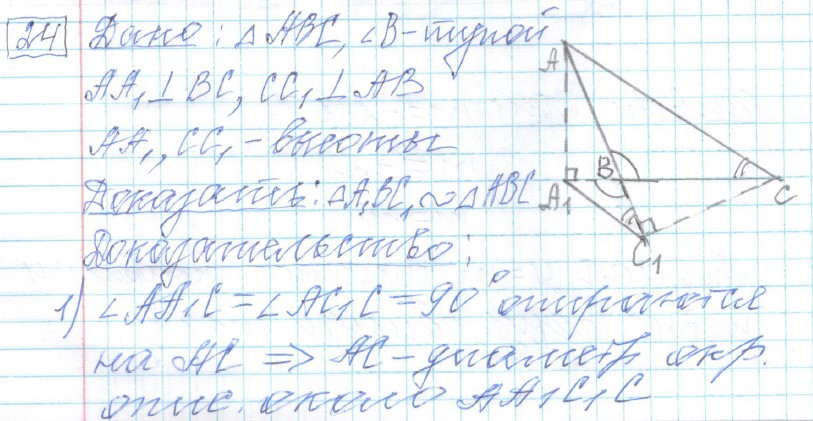 24 Дано: △ABC, ∠B-тупой
AA₁⊥BC, CC₁⊥AB
AA₁, CC₁ - высоты
Доказать: △A₁BC₁ ~ △ABC
Доказательство:
1) ∠AA₁C = ∠AC₁C = 90° опираются
на AC => AC - диаметр окр.
опис. около AA₁C₁C
A
B
A₁
C
C₁